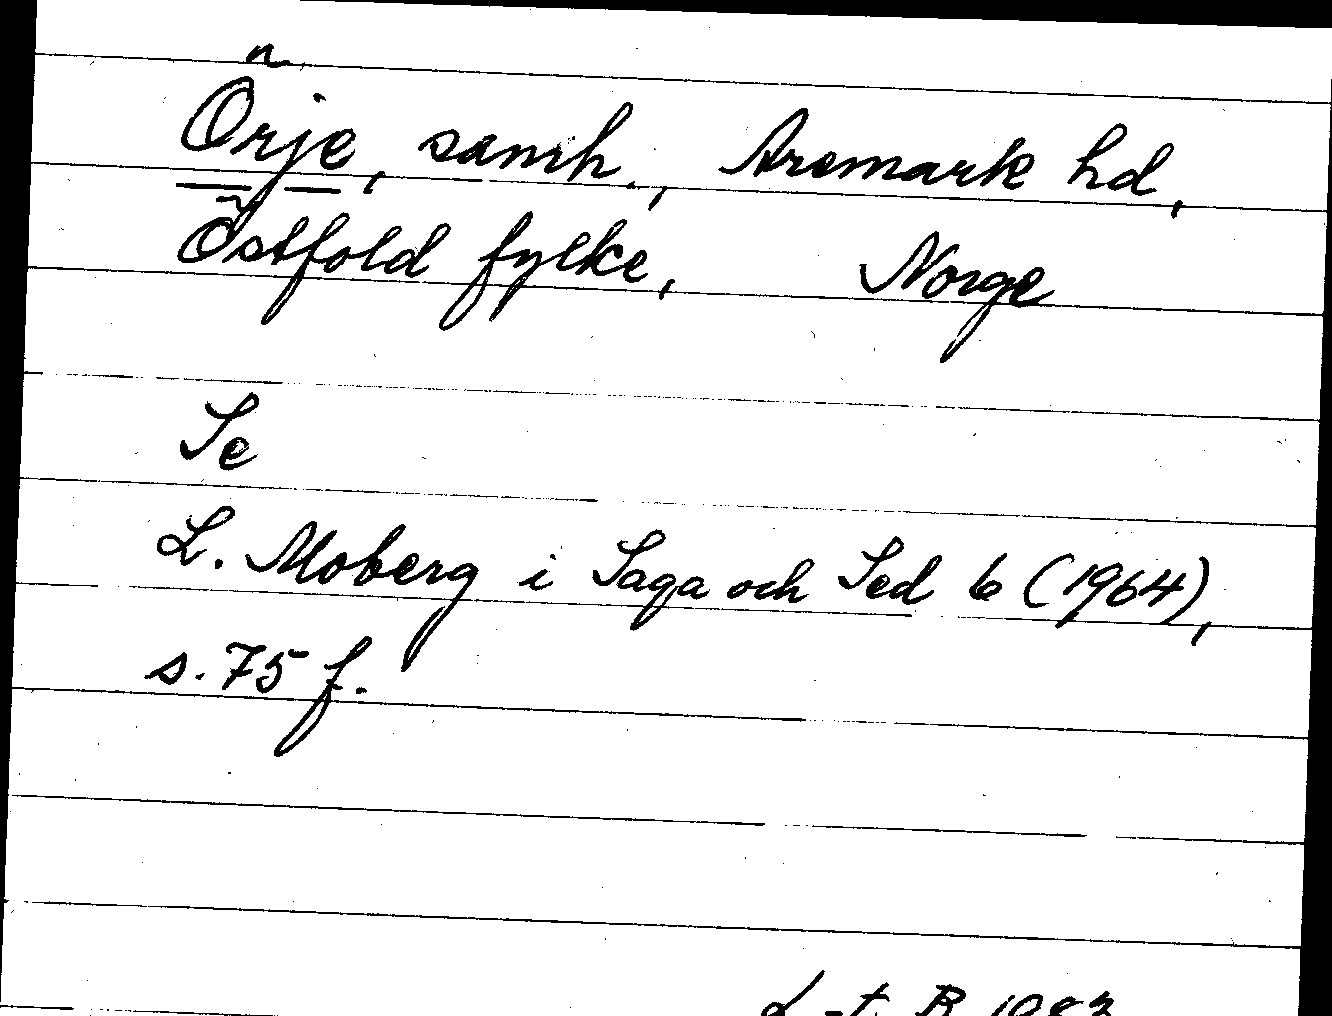 Örje, samh., Aremark hd,
Östfold fylke, Norge
Se
L. Moberg i Saga och Sed 6 (1964),
s. 75 f.